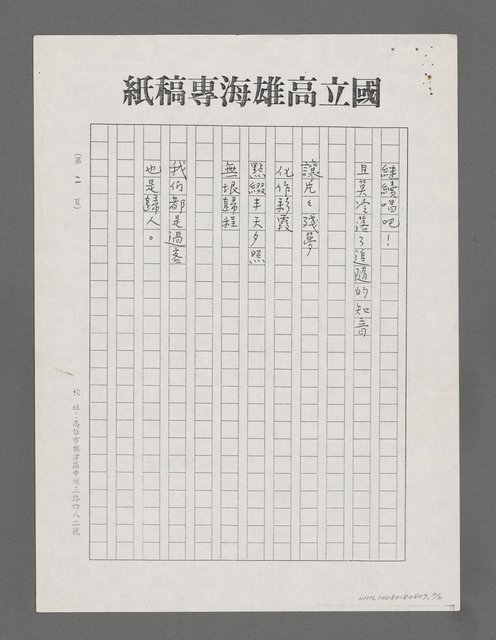 國立高雄海專稿紙
繼續唱吧！
且莫冷落了追隨的知音
讓片々殘夢
化作彩霞
點綴半天夕照
無垠歸程
我們都是過客
也是歸人。
(第二頁)
校址：高雄市旗津區中洲三路四八二號